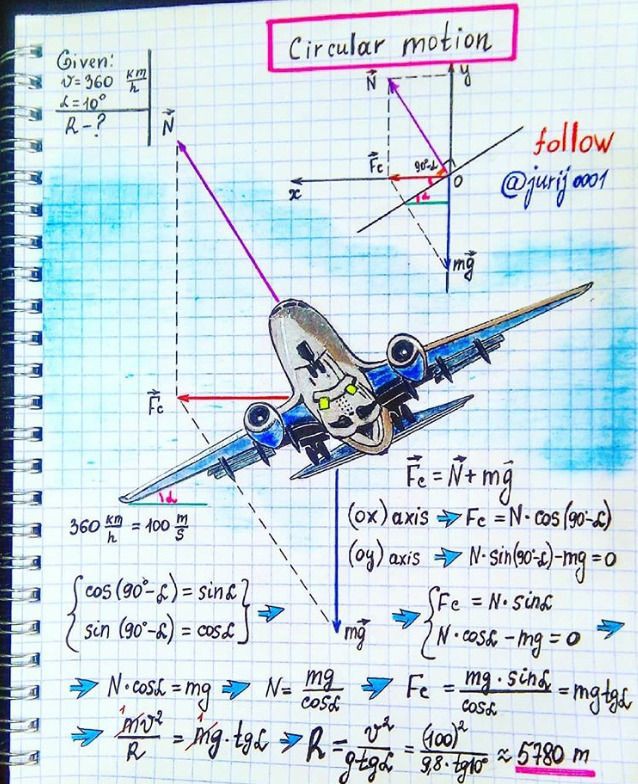 Circular motion
Given:
v = 360 km/h
α = 10°
R - ?
N⃗
N⃗
y
F⃗c
90°-α
x
O
α
mg⃗
follow
@jurij0001
F⃗c
α
360 km/h = 100 m/s
mg⃗
F⃗c = N⃗ + mg⃗
(ox) axis ➡ Fc = N·cos(90°-α)
(oy) axis ➡ N·sin(90°-α) - mg = 0
{ cos(90°-α) = sinα } ➡
{ sin(90°-α) = cosα }
➡ { Fc = N·sinα
{ N·cosα - mg = 0 ➡
➡ N·cosα = mg ➡ N = mg/cosα ➡ Fc = mg·sinα/cosα = mg tgα
➡ 1 mv²/R = 1 mg·tgα ➡ R = v²/g tgα = (100)²/9,8·tg10° ≈ 5780 m